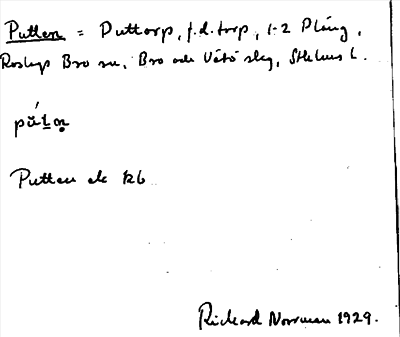 Putten = Puttorp, f.d. torp, 1-2 Plång,
Bro sn, Bro och Vätö skg, Sthlms l.
Putten ek kb
Richard Norrman 1929.